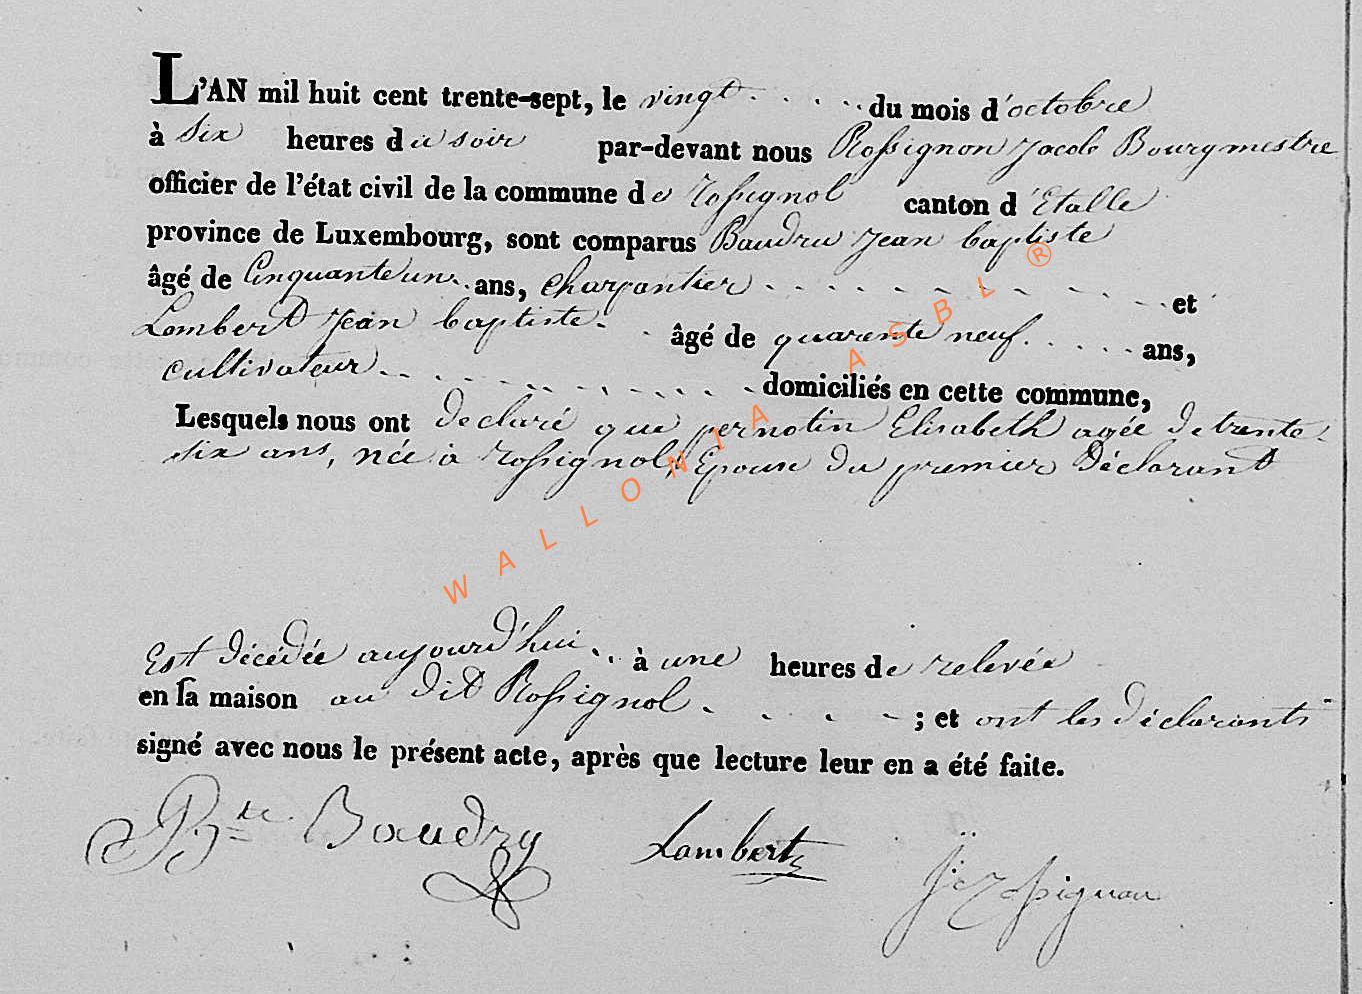 L'AN mil huit cent trente-sept, le vingt . . . . . du mois d'octobre
à six heures du soir par-devant nous Rossignon Jacob Bourgmestre
officier de l'état civil de la commune de rossignol canton d'Etalle
province de Luxembourg, sont comparus Baudru jean baptiste
âgé de Cinquante un . . ans, charpentier . . . . . . . . . . et
Lambert jean baptiste . . âgé de quarente neuf . . . . . ans,
cultivateur . . . . . . . . . . domiciliés en cette commune,
Lesquels nous ont déclaré que pernotin Elisabeth agée de trente
six ans, née à rossignol, Epouse du premier Déclarant
Est décédée aujourd'hui . . à une heures de relevée
en sa maison au dit Rossignol . . . . ; et ont les déclarants
signé avec nous le présent acte, après que lecture leur en a été faite.
Bte Baudry Lambert Jc Rossignon
WALLONIA ASBL ®